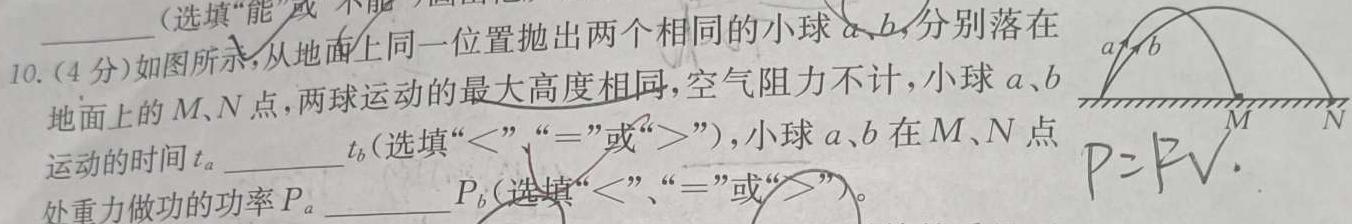 (选填“能”或“不能”)
10. (4分)如图所示,从地面上同一位置抛出两个相同的小球 a、b,分别落在
地面上的 M、N 点,两球运动的最大高度相同,空气阻力不计,小球 a、b
运动的时间 ta ______ tb(选填“<”、“=”或“>”),小球 a、b 在 M、N 点
处重力做功的功率 Pa ______ Pb(选填“<”、“=”或“>”)。
a b
M N
P=FV.